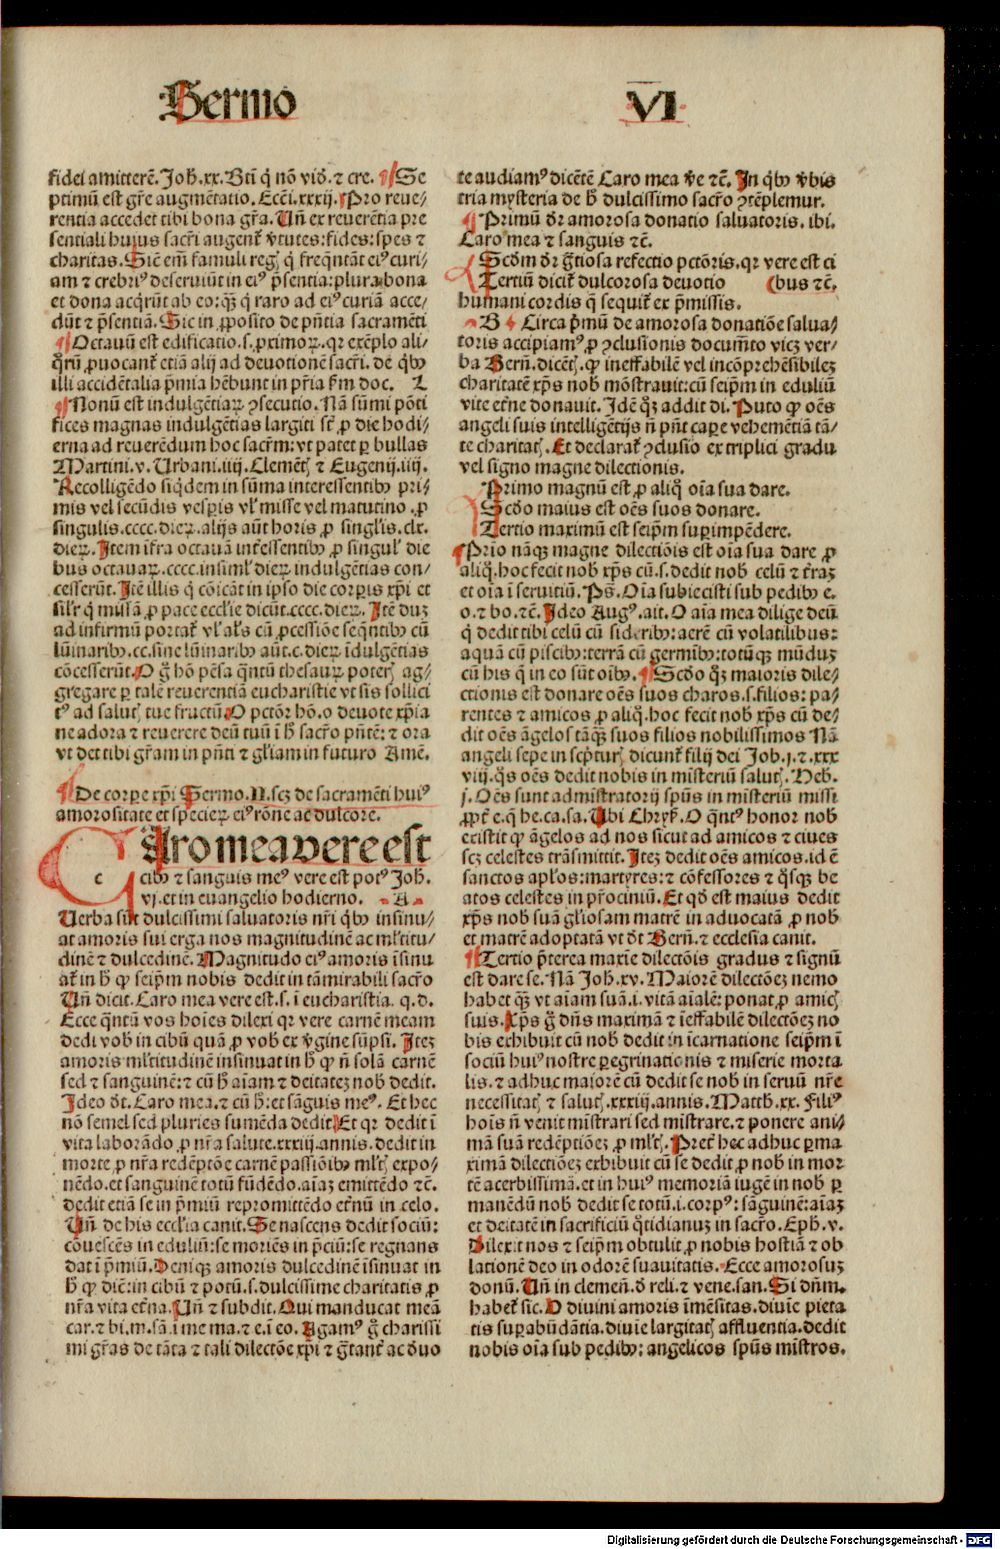 Sermo VI
fidei amitterē. Joh̄. xx. Btī q̇ nō vid̄. ⁊ cre. ¶ Se
ptimū est gr̄e augmētatio. Ecci. xxxij. ¶ Pro reue⸗
rentia accedet tibi bona gr̄a. Un̄ ex reuerētia pre
sentiali huius sacr̄i augent̄ v̄tutes: fides: spes ⁊
charitas. Sic em̄ famuli reg̃ q̇ freq̄ntāt eiꝰ curi⸗
am ⁊ crebriꝰ deseruiūt in eiꝰ p̄sentia: plura bona
et dona acq̇rūt ab eo: qz̄ q̇ raro ad eiꝰ curiā acce⸗
dūt ⁊ p̄sentiā. Sic in ꝓposito de pn̄tia sacramēti
¶ Octauū est edificatio. s. ꝓximoꝝ. qr exēplo ali⸗
q̄rū ꝓuocant̄ etiā alij ad deuotionē sacr̄i. de q̇bꝰ
illi accidētalia p̄mia hēbunt in pr̄ia scd̄m doc. L
¶ Nonū est indulgētiaꝝ ꝯsecutio. Nā sūmi pōti
fices magnas indulgētias largiti sūt ꝓ die hodi⸗
erna ad reuerēdum hoc sacrm̄: vt patet ꝑ bullas
Martini. v. Urbani. iiij. Clemēt̃ ⁊ Eugenij. iiij.
Recolligēdo siq̇dem in sūma interessentibꝰ pri⸗
mis vel secūdis vesꝑis vl̓ misse vel matutino. ꝓ
singulis. cccc. dieꝝ. alijs aūt horis ꝓ singl̓is. clx.
dieꝝ. Item īfra octauā int̓essentibꝰ ꝓ singul̓ die
bus octauaꝝ. cccc. insiml̓ dieꝝ indulgētias con⸗
cesserūt. Itē illis q̇ cōicāt in ipso die corꝑis xp̄i et
sil̓r q̇ missā ꝓ pace eccl̓ie dicūt. cccc. dieꝝ. Itē duz
ad infirmū portat̄ vl̓ al̓s cū ꝓcessiōe seq̄ntibꝰ cū
lūinaribꝰ. cc. sine lūinaribꝰ aūt. c. dieꝝ īdulgētias
cōcesserūt. O g̊ hō pēsa q̄ntū thesauꝝ potes̃ ag⸗
gregare ꝑ talē reuerentiā eucharistie vt sis sollici
tꝰ ad salut̃ tue fructū. O pctōr hō. o deuote xp̄ia
ne adora ⁊ reuerere deū tuū ī h̄ sacr̄o pn̄tē: ⁊ ora
vt det tibi gr̄am in pn̄ti ⁊ gl̓iam in futuro Amē.
¶ De corꝑe xp̄i Sermo. II. scz de sacramēti huiꝰ
amorositate et specieꝝ eiꝰ rōne ac dulcore.
Caro mea vere est
c
cibꝰ ⁊ sanguis meꝰ vere est potꝰ Joh̄.
vj. et in euangelio hodierno. A
Uerba sūt dulcissimi saluatoris nr̄i q̇bꝰ insinu⸗
at amoris sui erga nos magnitudinē ac ml̓titu⸗
dinē ⁊ dulcedinē. Magnitudo eiꝰ amoris īsinu
at̄ in h̄ ꝙ seip̄m nobis dedit in tā mirabili sacr̄o
Un̄ dicit. Caro mea vere est. s. ī eucharistia. q. d.
Ecce q̄ntū vos hoīes dilexi qr vere carnē meam
dedi vob̄ in cibū quā ꝓ vob̄ ex v̄gine sūpsi. Itez
amoris ml̓titudinē insinuat in h̄ ꝙ nō solā carnē
sed ⁊ sanguinē: ⁊ cū h̄ aīam ⁊ deitatez nob̄ dedit.
Ideo dt̄. Caro mea. ⁊ cū h̄: et sāguis meꝰ. Et hec
nō semel sed pluries sumēda dedit Et qr dedit ī
vita laborādo ꝓ nr̄a salute. xxxiij annis. dedit in
morte ꝓ nr̄a redēptōe carnē passiōibꝰ ml̓t̃ expo⸗
nēdo. et sanguinē totū fūdēdo. aīaz emittēdo ⁊c̄.
dedit etiā se in p̄miū repromittēdo et̓nū in celo.
Un̄ de his eccl̓ia canit. Se nascens dedit sociū:
cōuescēs in eduliū: se moriēs in p̄ciū: se regnans
dat ī p̄miū. Deniqz amoris dulcedinē īsinuat in
h̄ ꝙ dic̄: in cibū ⁊ potū. s. dulcissime charitatis ꝓ
nr̄a vita et̓na. Un̄ ⁊ subdit. Qui manducat meā
car. ⁊ bi. m. sā. ī me ma. ⁊ e. ī eo. Agamꝰ g̊ charissi
mi gr̄as de tāta ⁊ tali dilectōe xp̄i ⁊ g̊tant̓ ac d̓uo
te audiamꝰ dicētē Caro mea v̄e ⁊c̄. In q̇bꝰ v̓bis
tria mysteria de h̄ dulcissimo sacr̄o ꝯtēplemur.
¶ Primū dr̄ amorosa donatio saluatoris. ibi.
Caro mea ⁊ sanguis ⁊c̄.
Scd̄m dr̄ g̊tiosa refectio pctōris. qr vere est ci
Tertiū dicit̄ dulcorosa deuotio (bus ⁊c̄.
humani cordis q̄ sequit̄ ex p̄missis.
B Circa p̄mū de amorosa donatiōe salua⸗
toris accipiamꝰ ꝓ ꝯclusionis documēto vicz ver⸗
ba Bern̄. dicēt̃. ꝙ ineffabilē vel incōprehēsibilez
charitatē xp̄s nob̄ mōstrauit: cū seip̄m in eduliū
vite et̓ne donauit. Idē qz̄ addit di. Puto ꝙ oēs
angeli suis intelligētijs nō pn̄t caꝑe vehemētiā tā⸗
te charitat̃. Et declarat̄ ꝯclusio ex triplici gradu
vel signo magne dilectionis.
Primo magnū est ꝓ aliq̊ oīa sua dare.
Scd̄o maius est oēs suos donare.
Tertio maximū est seip̄m suꝑimpēdere.
¶ Prīo nāqz magne dilectiōis est oīa sua dare ꝓ
aliq̊. hoc fecit nob̄ xp̄s cū. s. dedit nob̄ celū ⁊ t̓raz
et oīa ī seruitiū. Ps̄. Oīa subiecisti sub pedibꝰ e.
o. ⁊ bo. ⁊c̄. Ideo Augꝰ. ait. O aīa mea dilige deū
q̇ dedit tibi celū cū sideribꝰ: aerē cū volatilibus:
aquā cū piscibꝰ: terrā cū germībꝰ: totūqz mūduz
cū his q̄ in eo sūt oībꝰ. ¶ Scd̄o qz̄ maioris dile⸗
ctionis est donare oēs suos charos. s. filios: pa⸗
rentes ⁊ amicos ꝓ aliq̊. hoc fecit nob̄ xp̄s cū de⸗
dit oēs āgelos tāqz̄ suos filios nobilissimos Nā
angeli sepe in scpt̄ur̃ dicunt̄ filij dei Job. j. ⁊. xxx
viij. q̄s oēs dedit nobis in misteriū salut̃. Heb.
j. Oēs sunt admistratorij spūs in misteriū missi
ꝓpt̓ e. q̇ he. ca. sa. Ubi Chrys̄. O q̄ntꝰ honor nob̄
existit ꝙ āgelos ad nos sicut ad amicos ⁊ ciues
scz celestes trāsmittit. Itez dedit oēs amicos. id ē
sanctos apl̓os: martyres: ⁊ cōfessores ⁊ q̄sqz be
atos celestes in pr̄ociniū. Et qd̄ est maius dedit
xp̄s nob̄ suā gl̓iosam matrē in aduocatā ꝓ nob̄
et matrē adoptatā vt dt̄ Bern̄. ⁊ ecclesia canit.
¶ Tertio p̄terea maxīe dilectōis gradus ⁊ signū
est dare se. Nā Joh̄. xv. Maiorē dilectōez nemo
habet qz̄ vt aīam suā. i. vitā aīalē: ponat, ꝓ amic̃
suis. Xp̄s g̊ dn̄s maximā ⁊ īeffabilē dilectōez no
bis exhibuit cū nob̄ dedit in īcarnatione seip̄m ī
sociū huiꝰ nostre ꝑegrinationis ⁊ miserie morta
lis. ⁊ adhuc maiorē cū dedit se nob̄ in seruū nr̄e
necessitat̃ ⁊ salut̃. xxxiij. annis. Matth̄. xx. Filiꝰ
hoīs nō venit mistrari sed mistrare. ⁊ ponere ani⸗
mā suā redēptiōez ꝓ ml̓t̃. Pret̓ hec adhuc ꝑma
ximā dilectiōez exhibuit cū se dedit ꝓ nob̄ in mor
tē acerbissimā. et in huiꝰ memoriā iugē in nob̄ ꝑ
manēdū nob̄ dedit se totū. i. corpꝰ: sāguinē: aīaz
et deitatē in sacrificiū q̊tidianuz in sacr̄o. Eph̄. v.
Dilexit nos ⁊ seip̄m obtulit ꝓ nobis hostiā ⁊ ob
lationē deo in odorē suauitatis. Ecce amorosuz
donū. Un̄ in clemen̄. d̓ reli. ⁊ vene. san. Si dn̄m.
habet̄ sic. O diuini amoris īmēsitas. diuīe pieta
tis suꝑabūdātia. diuīe largitat̃ affluentia. dedit
nobis oīa sub pedibꝰ: angelicos spūs mistros.
Digitalisierung gefördert durch die Deutsche Forschungsgemeinschaft - DFG